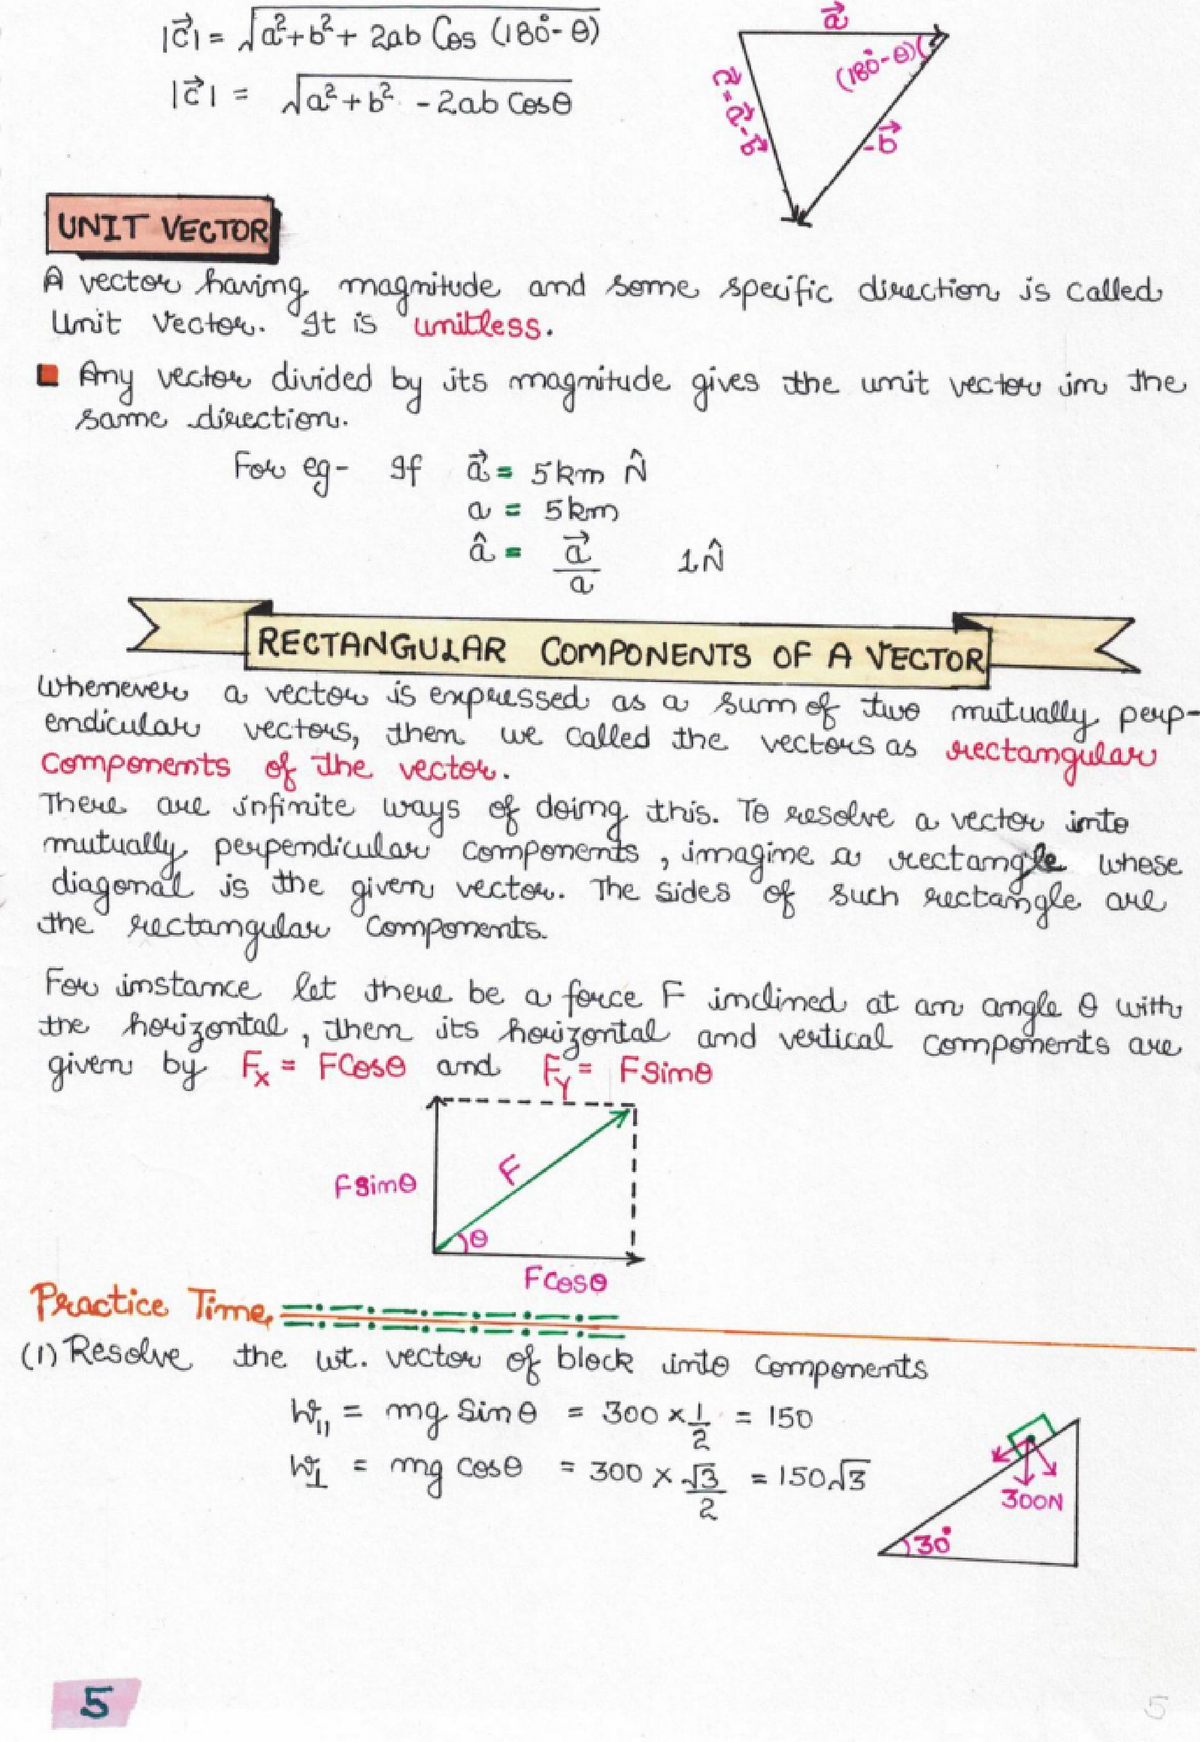 |c⃗| = √(a²+b²+ 2ab Cos (180°- θ))
|c⃗| = √(a²+b² - 2ab Cosθ)
a⃗
(180°-θ)
c⃗ = a⃗ - b⃗
-b⃗
UNIT VECTOR
A vector having magnitude and some specific direction is called
Unit Vector. It is unitless.
Any vector divided by its magnitude gives the unit vector in the
same direction.
For eg- If a⃗ = 5km N̂
a = 5km
â = a⃗/a 1N̂
RECTANGULAR COMPONENTS OF A VECTOR
Whenever a vector is expressed as a sum of two mutually perp-
endicular vectors, then we called the vectors as rectangular
Components of the vector.
There are infinite ways of doing this. To resolve a vector into
mutually perpendicular components, imagine a rectangle whose
diagonal is the given vector. The sides of such rectangle are
the rectangular Components.
For instance let there be a force F inclined at an angle θ with
the horizontal, then its horizontal and vertical components are
given by Fx = FCosθ and FY = FSinθ
FSinθ
F
θ
FCosθ
Practice Time
(1) Resolve the wt. vector of block into Components
W|| = mg Sinθ = 300 × 1/2 = 150
W⊥ = mg cosθ = 300 × √3/2 = 150√3
300N
30°
5
5